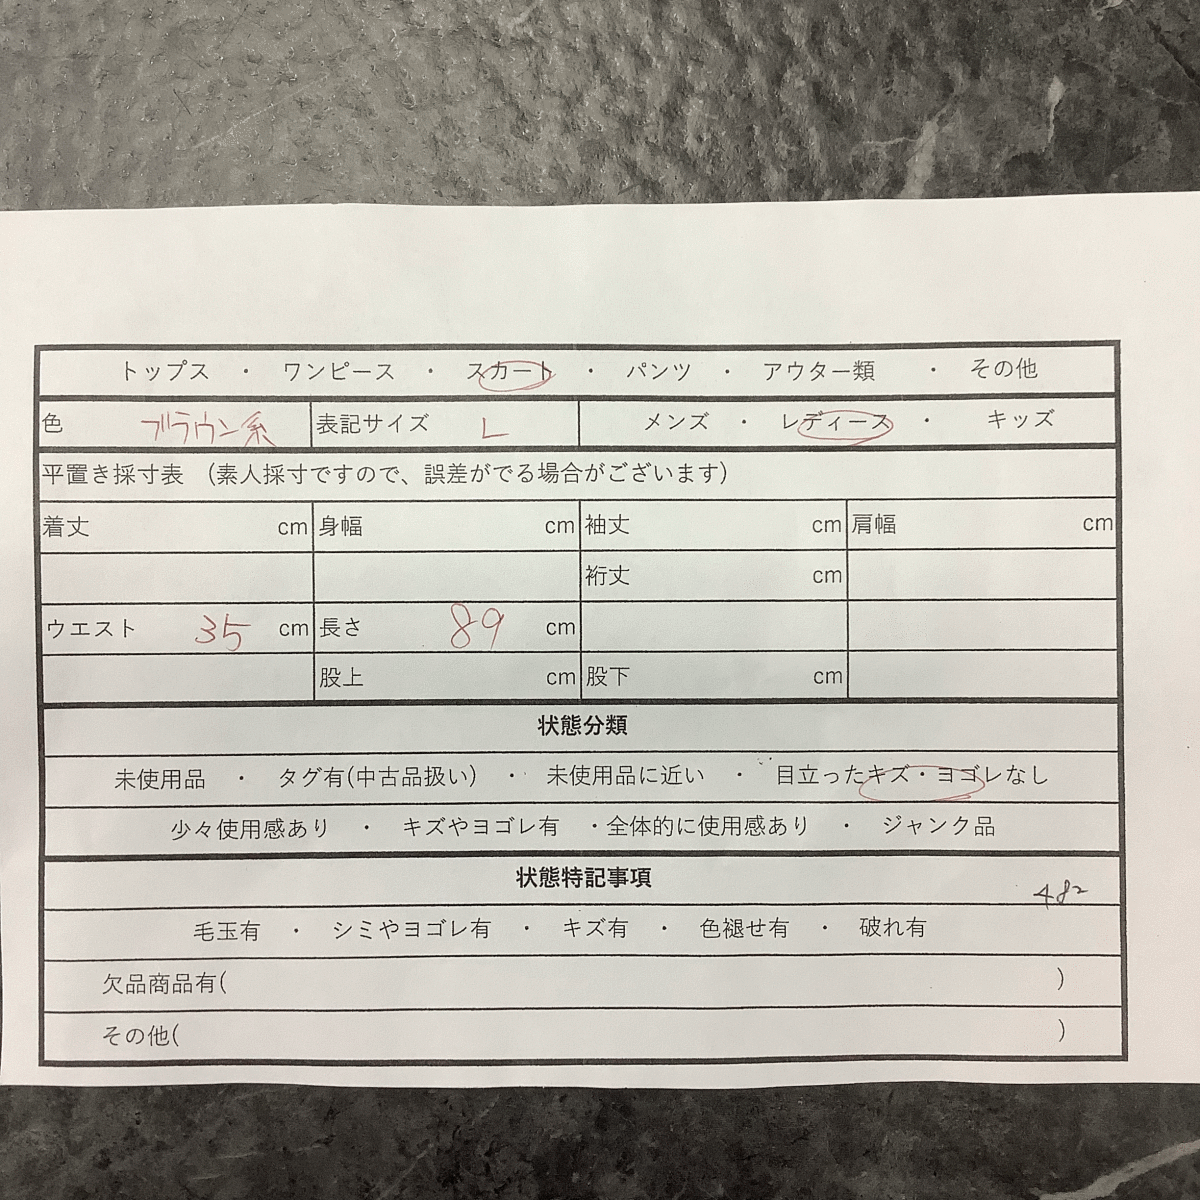 トップス ・ ワンピース ・ スカート ・ パンツ ・ アウター類 ・ その他
色 ブラウン系 表記サイズ L メンズ ・ レディース ・ キッズ
平置き採寸表 (素人採寸ですので、誤差がでる場合がございます)
着丈 cm 身幅 cm 袖丈 cm 肩幅 cm
裄丈 cm
ウエスト 35 cm 長さ 89 cm
股上 cm 股下 cm
状態分類
未使用品 ・ タグ有(中古品扱い) ・ 未使用品に近い ・ 目立ったキズ・ヨゴレなし
少々使用感あり ・ キズやヨゴレ有 ・全体的に使用感あり ・ ジャンク品
状態特記事項
482
毛玉有 ・ シミやヨゴレ有 ・ キズ有 ・ 色褪せ有 ・ 破れ有
欠品商品有( )
その他( )